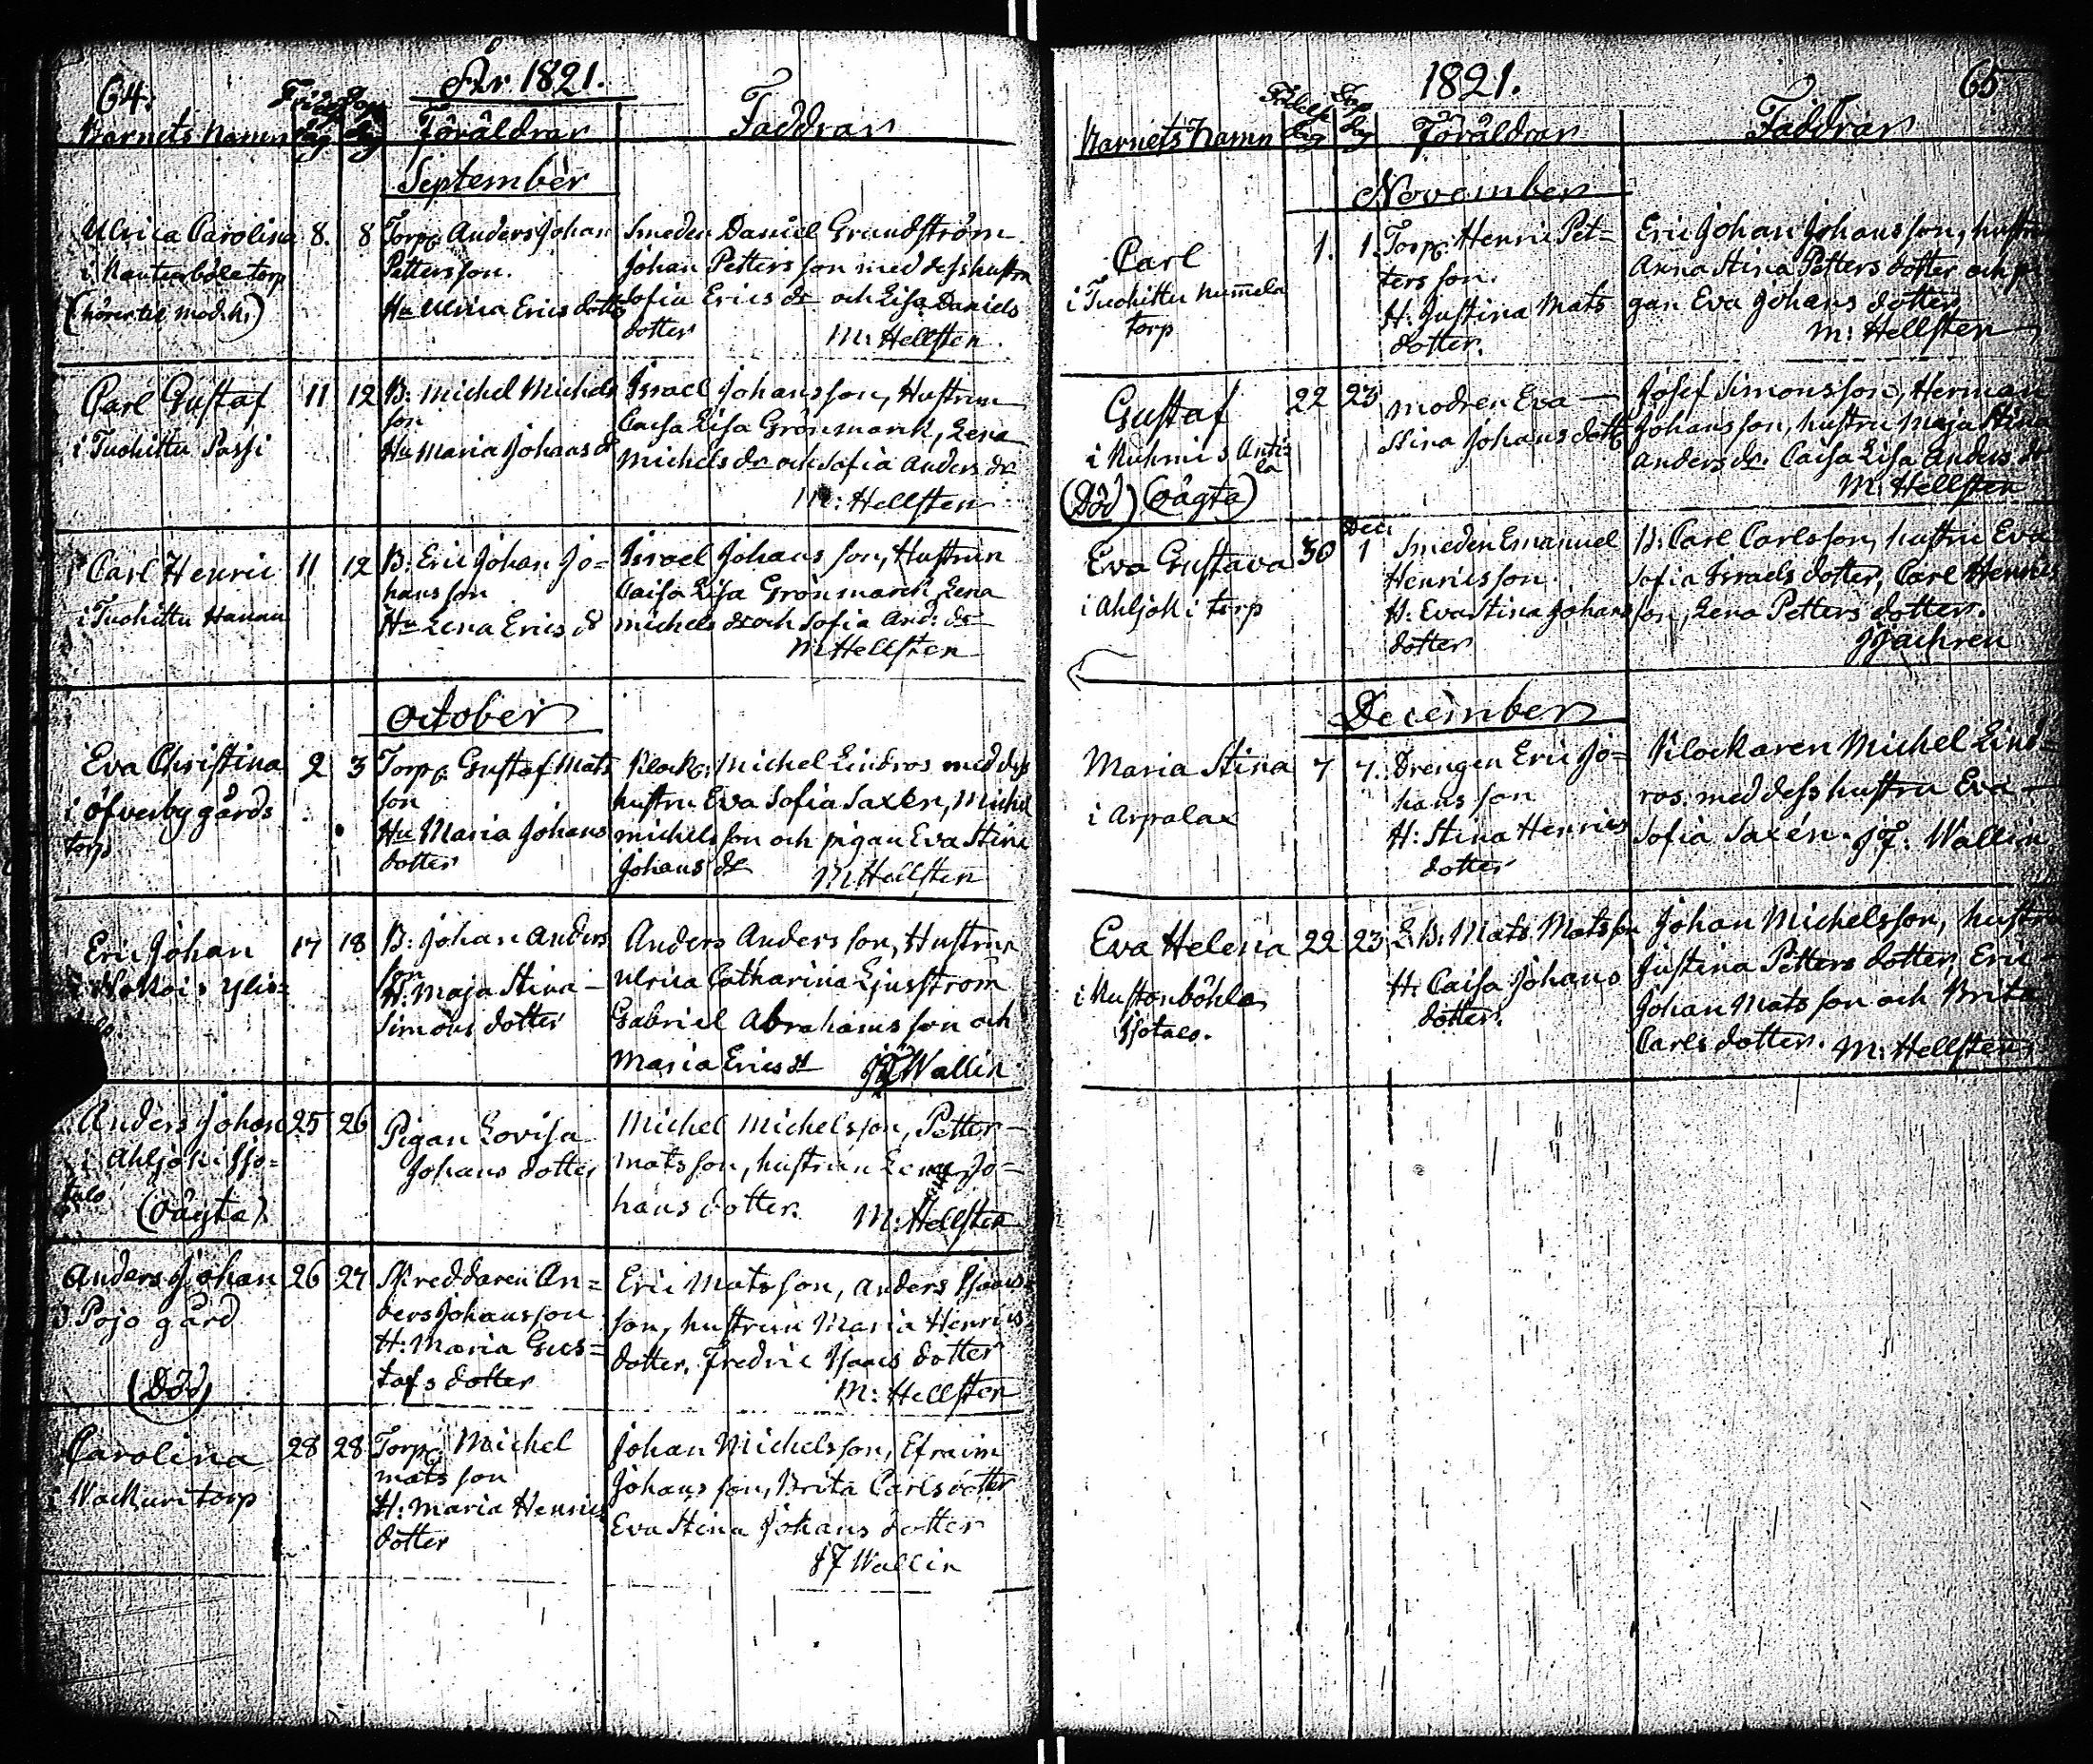 64.
År 1821.
Barnets Namn
Föräldrar
Faddrar
September
Ulrica Carolina 8. 8 Torp. Anders Johan Smeden Daniel Grundström
i Nauterböle torp Pettersson. Johan Petersson med dess hustru
(hörer till mod. k.) Hu Ulrica Erics dotter Sofia Erics dr och Lisa Daniels
dotter M: Hellsten.
Carl Gustaf 11 12 B: Michel Michels Israel Johansson, Hustrun
i Tuohittu Passi son Caisa Lisa Grönmarck, Lena
Hu Maria Johans d Michels dr och Sofia Anders dr
M: Hellsten
Carl Henric 11 12 B: Eric Johan Jo= Israel Johansson, Hustrun
i Tuohittu Hannu hansson Caisa Lisa Grönmarck, Lena
Hu Lena Erics d Michels dr och Sofia And: dr
M Hellsten
October
Eva Christina 2 3 Torp. Gustaf Mats Klock: Michel Lindros med dess
i öfverby gårds son hustru Eva Sofia Saxén, Michel
torp Hu Maria Johans Michelsson och pigan Eva Stina
dotter Johans dr M Hellsten
Eric Johan 17 18 B: Johan Anders Anders Andersson, Hustrun
son Ulrica Catharina Ljusström
H: Maja Stina Gabriel Abrahamsson och
Simons dotter Maria Erics d JF Wallin
Anders Johan 25 26 Pigan Lovisa Michel Michelsson, Petter
i Ahljoki Iso= Johans dotter Matsson, hustrun Lena Jo=
talo hans dotter. M: Hellsten
(oägta)
Anders Johan 26 27 Skreddaren An= Eric Matsson, Anders Isaacs
Pojo gård ders Johansson son, hustrun Maria Henrics
H: Maria Gus= dotter, Fredric Isaacs dotter
(död) tafs dotter M: Hellsten
Carolina 28 28 Torp. Michel Johan Michelsson, Efraim
i Wackuri torp Matsson Johansson, Brita Carlsdotter
H: Maria Henrics Eva Stina Johans dotter
dotter JF Wallin
1821.
65
Barnets Namn
Föräldrar
Faddrar
November
Carl 1. 1. Torp. Henric Pet= Eric Johan Johansson, hustrun
i Tuohittu Nummela tersson. Anna Stina Petters dotter och pi
torp H: Justina Mats gan Eva Johans dotter
dotter. M: Hellsten
Gustaf 22 23 Modren Eva Josef Simonsson, Herman
i Kuhmis Anti= Stina Johans dott Johansson, hustru Maja Stina
la Anders dr. Caisa Lisa Anders dr
(död) (oägta) M: Hellsten
Dec:
Eva Gustava 30 1 Smeden Emanuel B: Carl Carlsson, hustru Eva
i Ahljoki torp Henricsson. Sofia Israels dotter, Carl Henrics
H: Eva Stina Johans son, Lena Petters dotter.
dotter J Jachren
December
Maria Stina 7 7. Drengen Eric Jo= Klockaren Michel Lind=
i Arpalax hansson ros. med dess hustru Eva
H: Stina Henrics Sofia Saxén. JF. Wallin
dotter
Eva Helena 22 23 L B: Mats Matsson Johan Michelsson, hustru
i Kustonböhle H: Caisa Johans Justina Petters dotter, Eric
Isotalo. dotter. Johan Matsson och Brita
Carls dotter. M: Hellsten